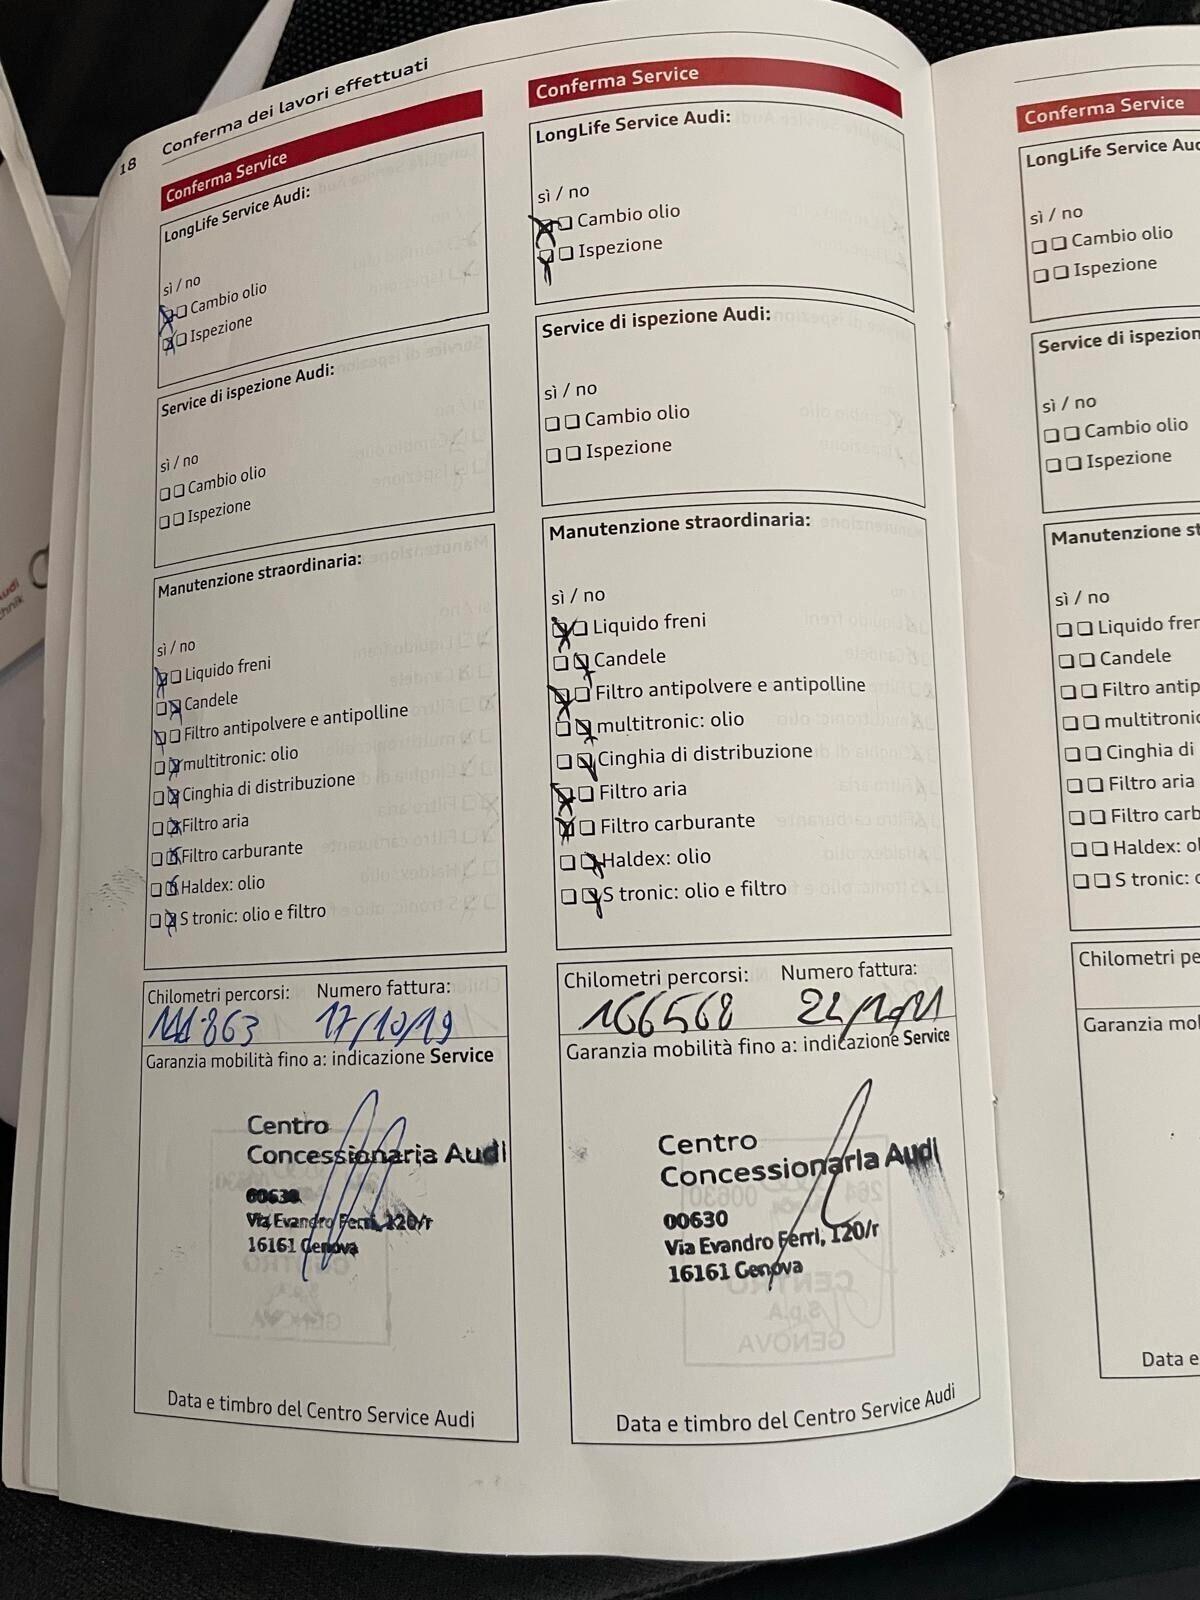 18 Conferma dei lavori effettuati
Conferma Service
LongLife Service Audi:
sì / no
Cambio olio
Ispezione
Service di ispezione Audi:
sì / no
Cambio olio
Ispezione
Manutenzione straordinaria:
sì / no
Liquido freni
Candele
Filtro antipolvere e antipolline
multitronic: olio
Cinghia di distribuzione
Filtro aria
Filtro carburante
Haldex: olio
S tronic: olio e filtro
Chilometri percorsi: Numero fattura:
111.863 17/10/19
Garanzia mobilità fino a: indicazione Service
Centro
Concessionaria Audi
00630
Via Evandro Ferri, 120/r
16161 Genova
Data e timbro del Centro Service Audi
Conferma Service
LongLife Service Audi:
sì / no
Cambio olio
Ispezione
Service di ispezione Audi:
sì / no
Cambio olio
Ispezione
Manutenzione straordinaria:
sì / no
Liquido freni
Candele
Filtro antipolvere e antipolline
multitronic: olio
Cinghia di distribuzione
Filtro aria
Filtro carburante
Haldex: olio
S tronic: olio e filtro
Chilometri percorsi: Numero fattura:
166568
Garanzia mobilità fino a: indicazione Service
Centro
Concessionaria Audi
00630
Via Evandro Ferri, 120/r
16161 Genova
Data e timbro del Centro Service Audi
Conferma Service
LongLife Service Aud
sì / no
Cambio olio
Ispezione
Service di ispezion
sì / no
Cambio olio
Ispezione
Manutenzione st
sì / no
Liquido fren
Candele
Filtro antip
multitronic
Cinghia di
Filtro aria
Filtro carb
Haldex: ol
S tronic: o
Chilometri pe
Garanzia mol
Data e